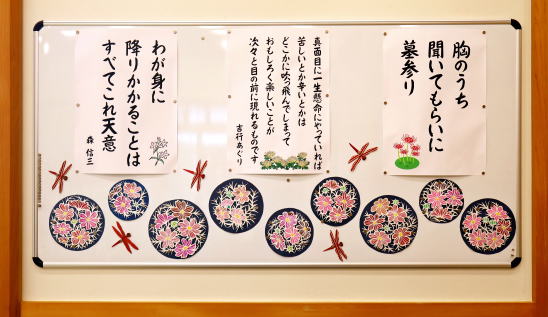 胸のうち
聞いてもらいに
墓参り
真面目に一生懸命にやっていれば
苦しいとか辛いとかは
どこかに吹っ飛んでしまって
おもしろく楽しいことが
次々と目の前に現れるものです
吉行あぐり
わが身に
降りかかることは
すべてこれ天意
森 信三